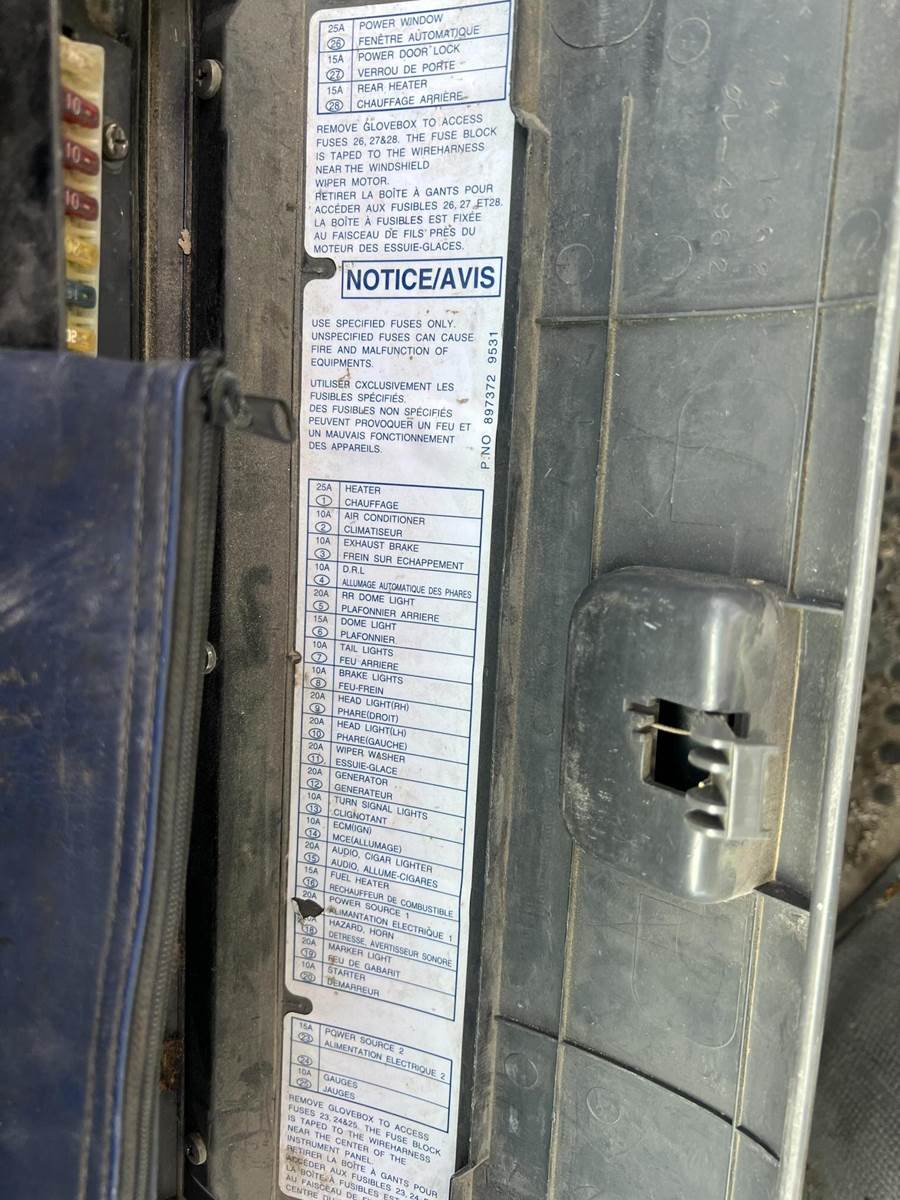 25A POWER WINDOW
26 FENÊTRE AUTOMATIQUE
15A POWER DOOR LOCK
27 VERROU DE PORTE
15A REAR HEATER
28 CHAUFFAGE ARRIÈRE
REMOVE GLOVEBOX TO ACCESS
FUSES 26, 27&28. THE FUSE BLOCK
IS TAPED TO THE WIREHARNESS
NEAR THE WINDSHIELD
WIPER MOTOR.
RETIRER LA BOÎTE À GANTS POUR
ACCÉDER AUX FUSIBLES 26, 27 ET28.
LA BOÎTE À FUSIBLES EST FIXÉE
AU FAISCEAU DE FILS PRÈS DU
MOTEUR DES ESSUIE-GLACES.
NOTICE/AVIS
USE SPECIFIED FUSES ONLY.
UNSPECIFIED FUSES CAN CAUSE
FIRE AND MALFUNCTION OF
EQUIPMENTS.
UTILISER CXCLUSIVEMENT LES
FUSIBLES SPÉCIFIÉS.
DES FUSIBLES NON SPÉCIFIÉS
PEUVENT PROVOQUER UN FEU ET
UN MAUVAIS FONCTIONNEMENT
DES APPAREILS.
P.NO 897372 9531
25A HEATER
1 CHAUFFAGE
10A AIR CONDITIONER
2 CLIMATISEUR
10A EXHAUST BRAKE
3 FREIN SUR ECHAPPEMENT
10A D.R.L
4 ALLUMAGE AUTOMATIQUE DES PHARES
20A RR DOME LIGHT
5 PLAFONNIER ARRIERE
15A DOME LIGHT
6 PLAFONNIER
10A TAIL LIGHTS
7 FEU ARRIERE
10A BRAKE LIGHTS
8 FEU-FREIN
20A HEAD LIGHT(RH)
9 PHARE(DROIT)
20A HEAD LIGHT(LH)
10 PHARE(GAUCHE)
20A WIPER WASHER
11 ESSUIE-GLACE
20A GENERATOR
12 GENERATEUR
10A TURN SIGNAL LIGHTS
13 CLIGNOTANT
10A ECM(IGN)
14 MCE(ALLUMAGE)
20A AUDIO, CIGAR LIGHTER
15 AUDIO, ALLUME-CIGARES
15A FUEL HEATER
16 RECHAUFFEUR DE COMBUSTIBLE
20A POWER SOURCE 1
ALIMANTATION ELECTRIQUE 1
HAZARD, HORN
18 DETRESSE, AVERTISSEUR SONORE
20A MARKER LIGHT
19 FEU DE GABARIT
10A STARTER
20 DEMARREUR
15A POWER SOURCE 2
23 ALIMENTATION ELECTRIQUE 2
24
10A GAUGES
25 JAUGES
REMOVE GLOVEBOX TO ACCESS
FUSES 23, 24&25. THE FUSE BLOCK
IS TAPED TO THE WIREHARNESS
NEAR THE CENTER OF THE
INSTRUMENT PANEL.
RETIRER LA BOÎTE À GANTS POUR
ACCÉDER AUX FUSIBLES 23, 24
LA BOÎTE À FUSIBLES EST
AU FAISCEAU DE
CENTRE
10
10
10